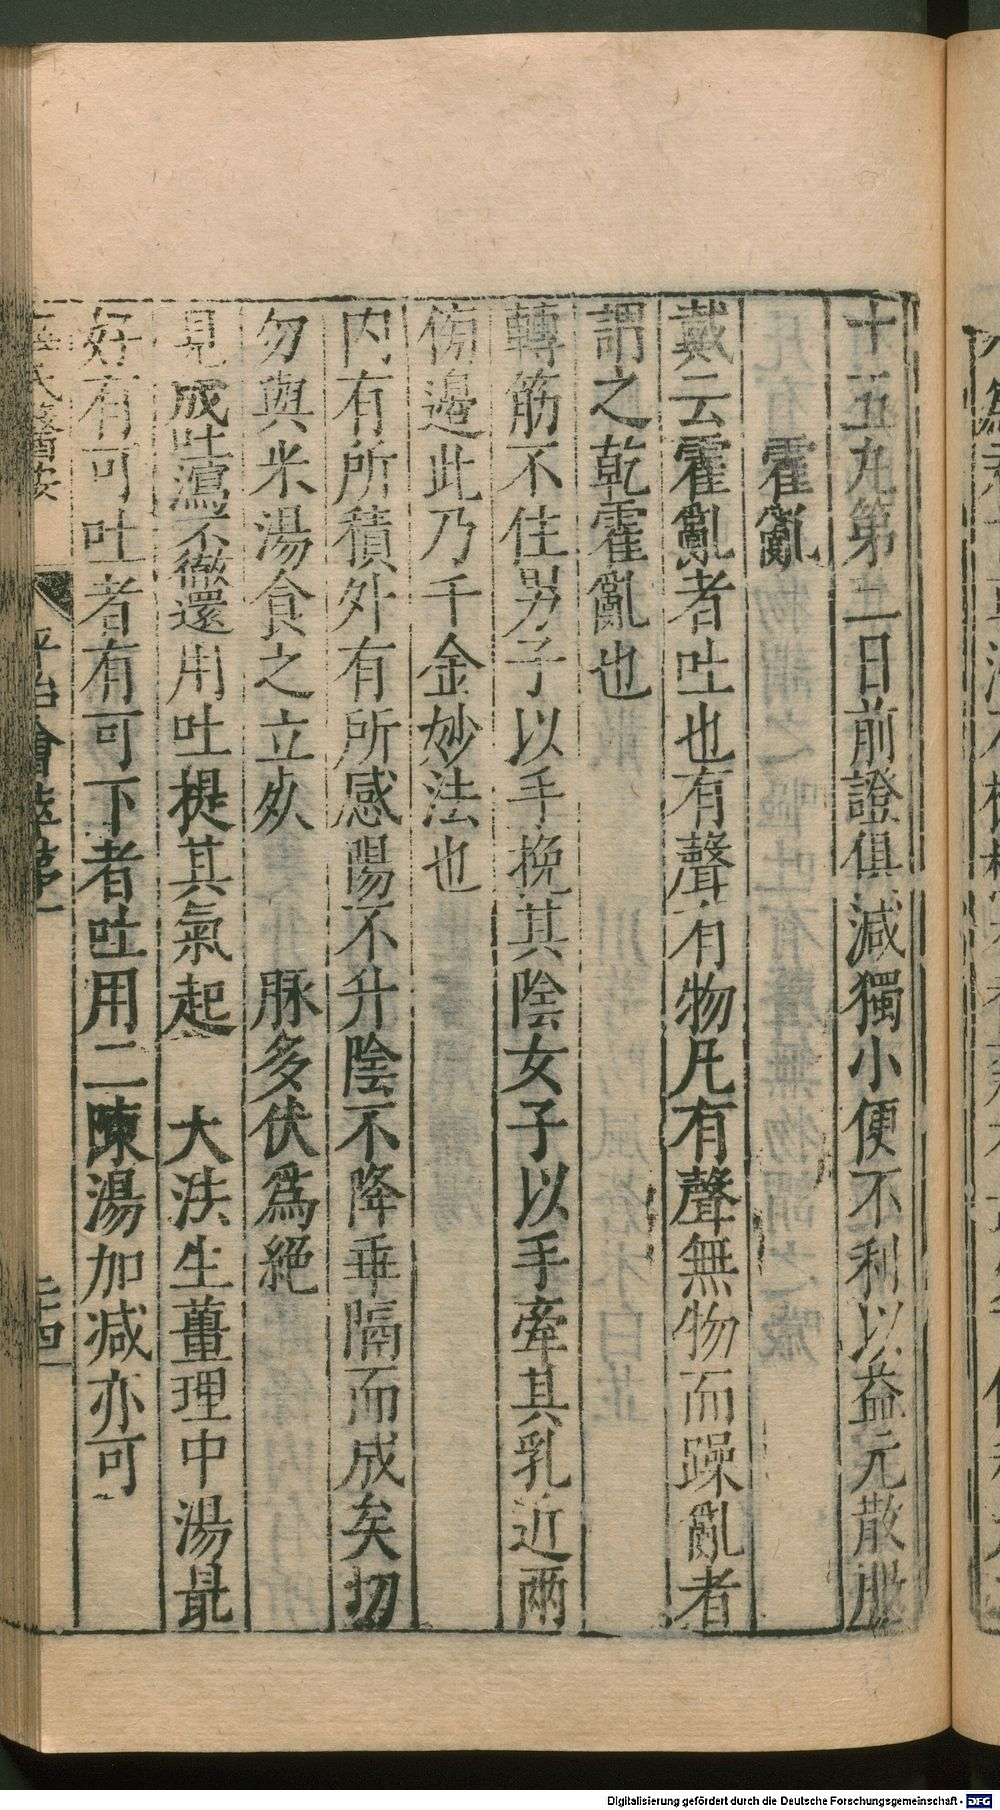 十五九第二日前證俱減獨小便不利以益元散服
霍亂
戴云霍亂者吐也有聲有物凡有聲無物而躁亂者
謂之乾霍亂也
轉筋不住男子以手挽其陰女子以手牽其乳近兩
傍邊此乃千金妙法也
內有所積外有所感陽不升陰不降乖隔而成矣切
勿與米湯食之立死 脉多伏爲絕
見成吐瀉不徹還用吐提其氣起 大法生薑理中湯最
好有可吐者有可下者吐用二陳湯加减亦可
平治會萃
Digitalisierung gefördert durch die Deutsche Forschungsgemeinschaft - DFG